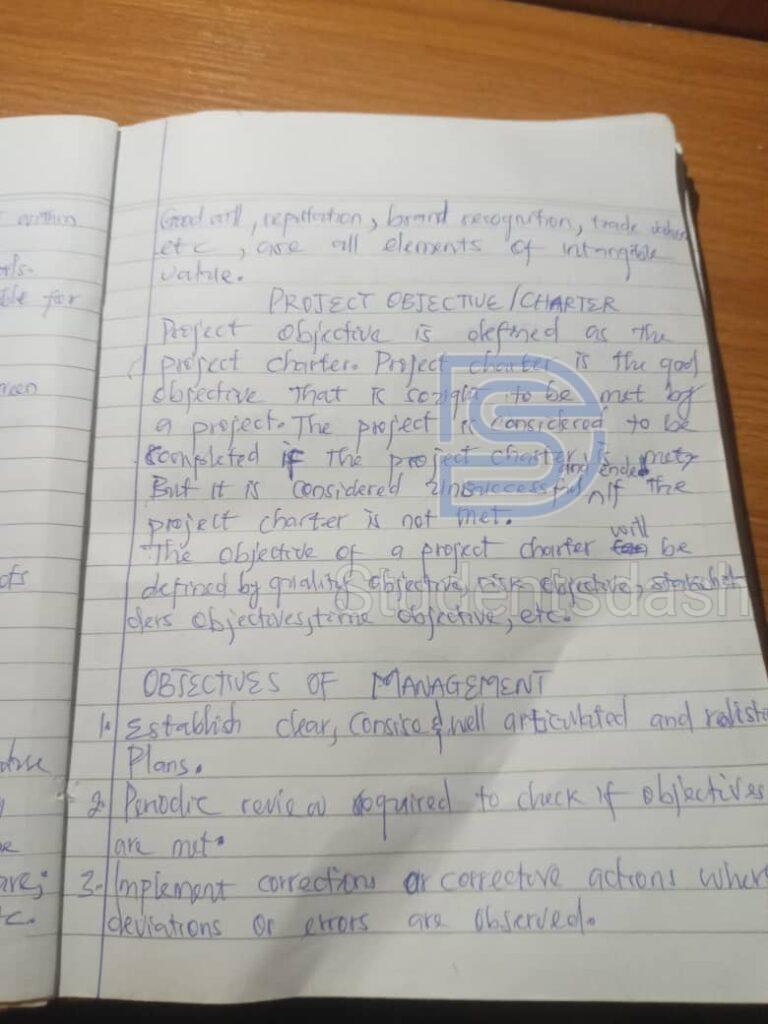 within
Good will, reputation, brand recognition, trade
etc, are all elements of intangible
value.
for
PROJECT OBJECTIVE/CHARTER
Project objective is defined as the
project charter. Project charter is the goal
objective that is sought to be met by
a project. The project is considered to be
completed if the project charter is met,
But it is considered unsuccessful and ended if the
project charter is not met.
The objective of a project charter will be
defined by quality objective, risk objective, stakehol
ders objectives, time objective, etc.
Studentsdash
OBJECTIVES OF MANAGEMENT
1. Establish clear, Consise & well articulated and realistic
Plans.
2. Periodic review required to check if objectives
are met.
3. Implement corrections or corrective actions where
deviations or errors are observed.